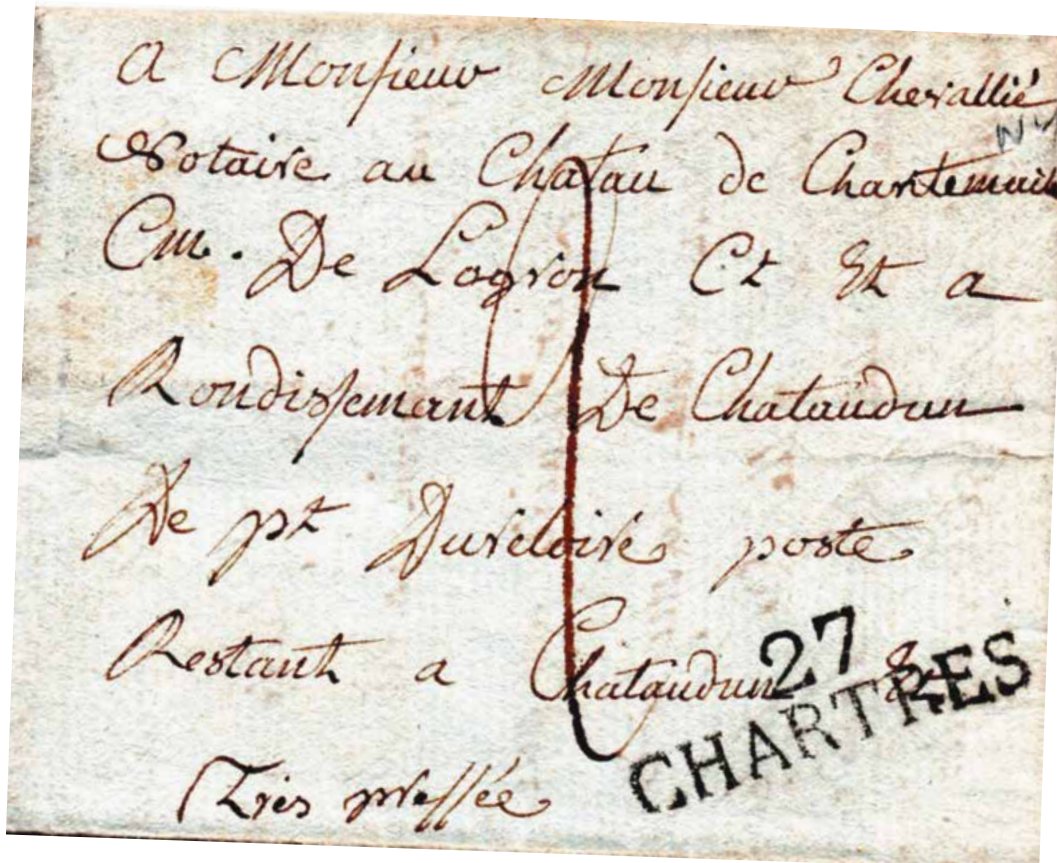 A Monsieur Monsieur Chevallié
Notaire au Chatau de Chantemail
Cm. De Logron Ct Et a
Rondissemant De Chataudun
De pt Dureloire poste
Restant a Chataudun Et
27
CHARTRES
Très pressée